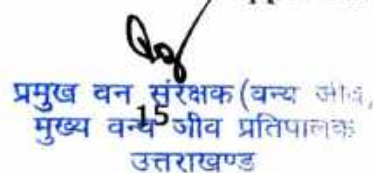 प्रमुख वन संरक्षक (वन्य जीव,
15
मुख्य वन्य जीव प्रतिपालक
उत्तराखण्ड